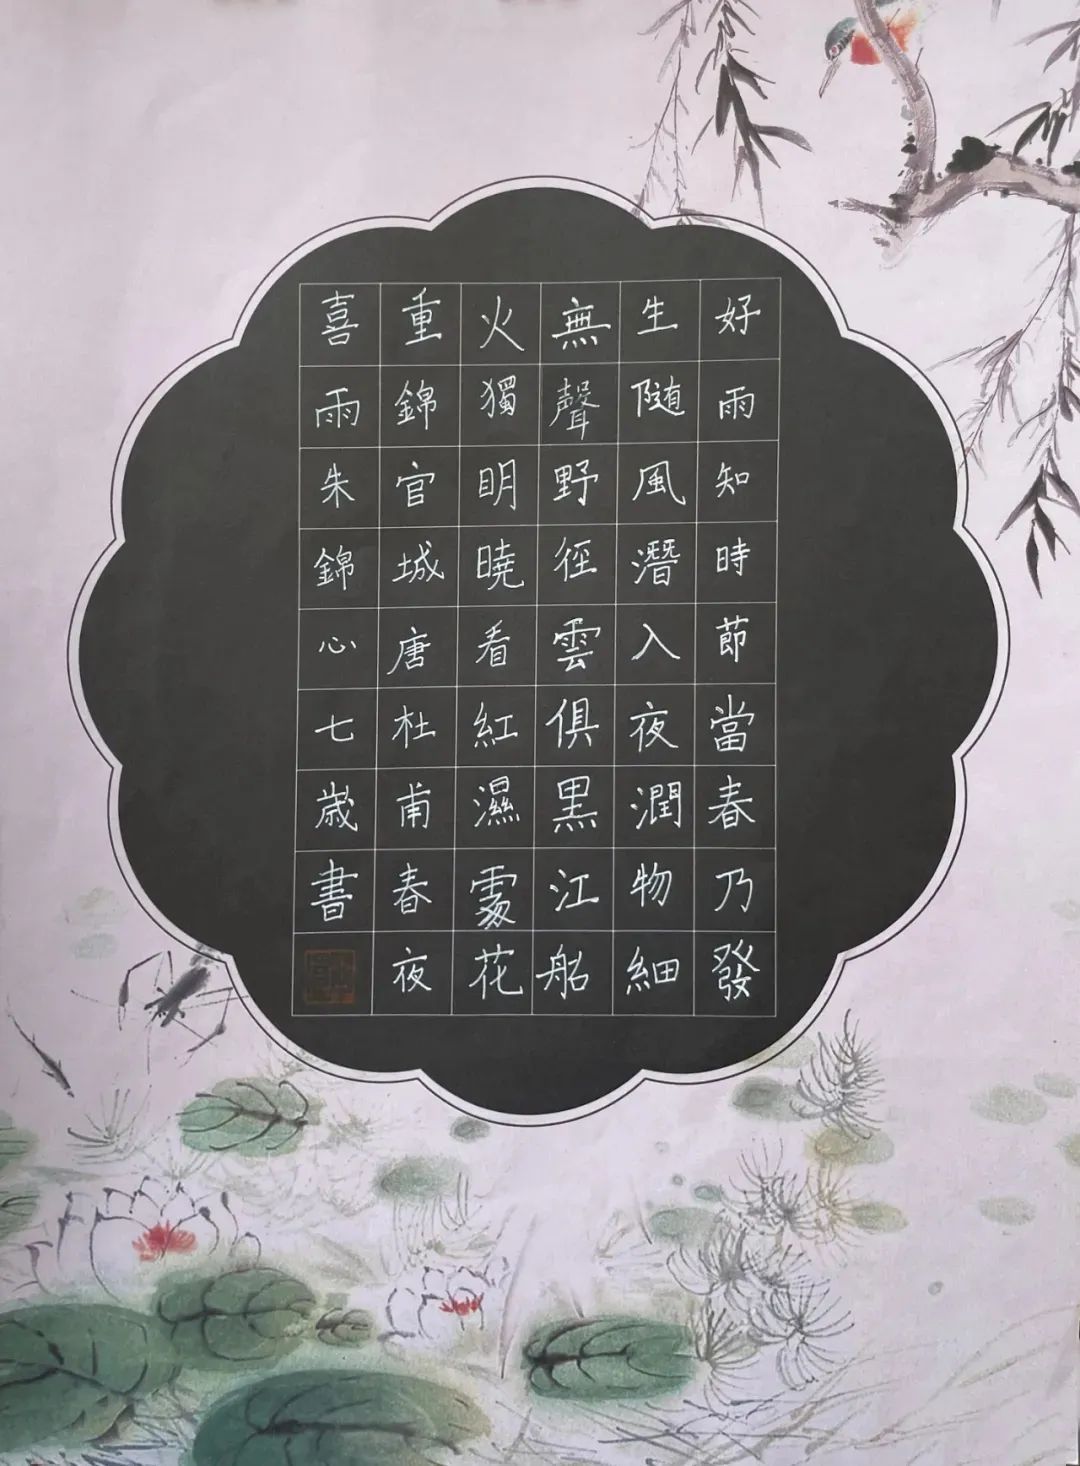 好雨知時節當春乃發
生随風潛入夜潤物細
無聲野徑雲俱黑江船
火獨明曉看紅濕處花
重錦官城唐杜甫春夜
喜雨朱錦心七歲書